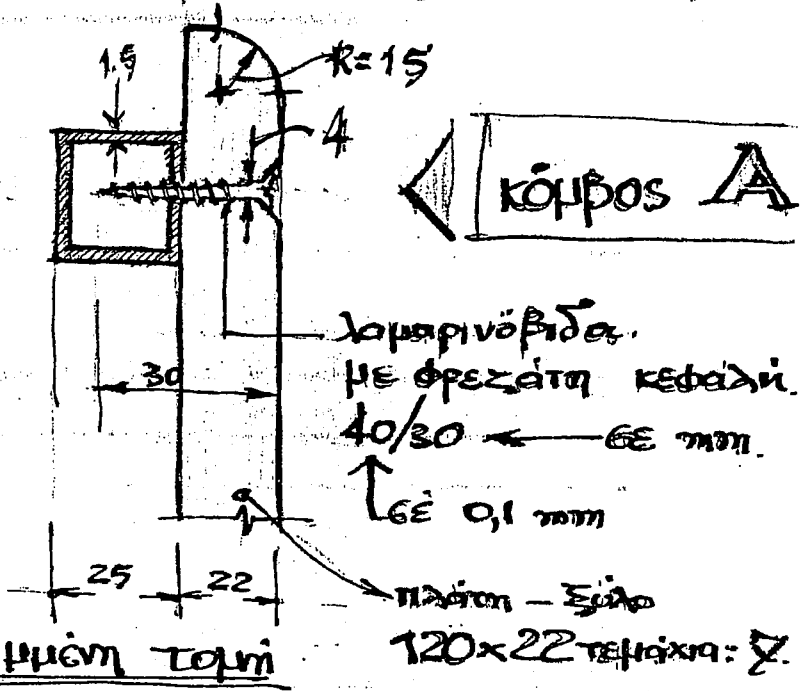 1.5
R=15
4
κόμβος A
λαμαρινόβιδα.
με φρεζάτη κεφαλή.
30
40/30 ← σε mm.
σε 0,1 mm
25
22
πλάτη – ξύλο
120x22 τεμάχια: 7.
μμένη τομή